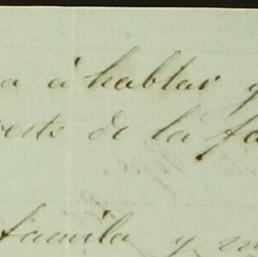 a á hablar y
este de la fa
familia y m